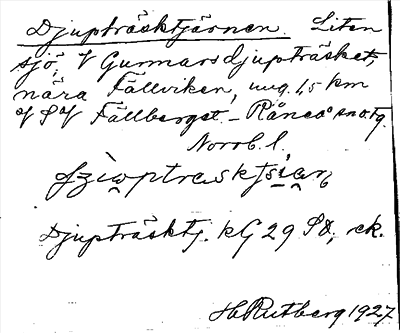 Djupträsktjärnen. Liten
sjö, V Gunnarsdjupträsket,
nära Fällviken, ung. 1,5 km
S Fällberget. - Råneå sn o. tg.
Norrb. l.
Djupträsktj. kG 29 SO, ek.
H. Rutberg 1927